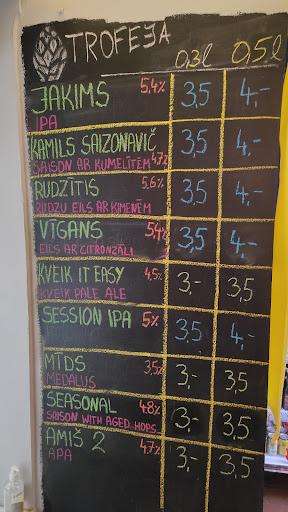 TROFEJA
0,3l 0,5l
JAKIMS 5,4% 3,5 4,-
IPA
KAMILS SAIZONAVIČ 3,5 4,-
SAISON AR KUMELĪTĒM 4,7%
RUDZĪTIS 5,6% 3,5 4,-
RUDZU EILS AR ĶIMENĒM
VĪGANS 5,4% 3,5 4,-
EILS AR CITRONZĀLI
KVEIK IT EASY 4,5% 3,- 3,5
KVEIK PALE ALE
SESSION IPA 5% 3,5 4,-
MTDS 3,5% 3,- 3,5
MEDALUS
SEASONAL 4.8% 3,- 3,5
SAISON WITH AGED HOPS
AMIŠ 2 4,7% 3,- 3,5
APA